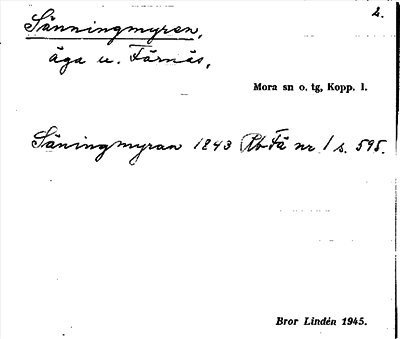 2.
Sänningmyren,
äga u. Färnäs,
Mora sn o. tg, Kopp. l.
Säningmyran 1843 Rb Fä nr 1 s. 595.
Bror Lindén 1945.